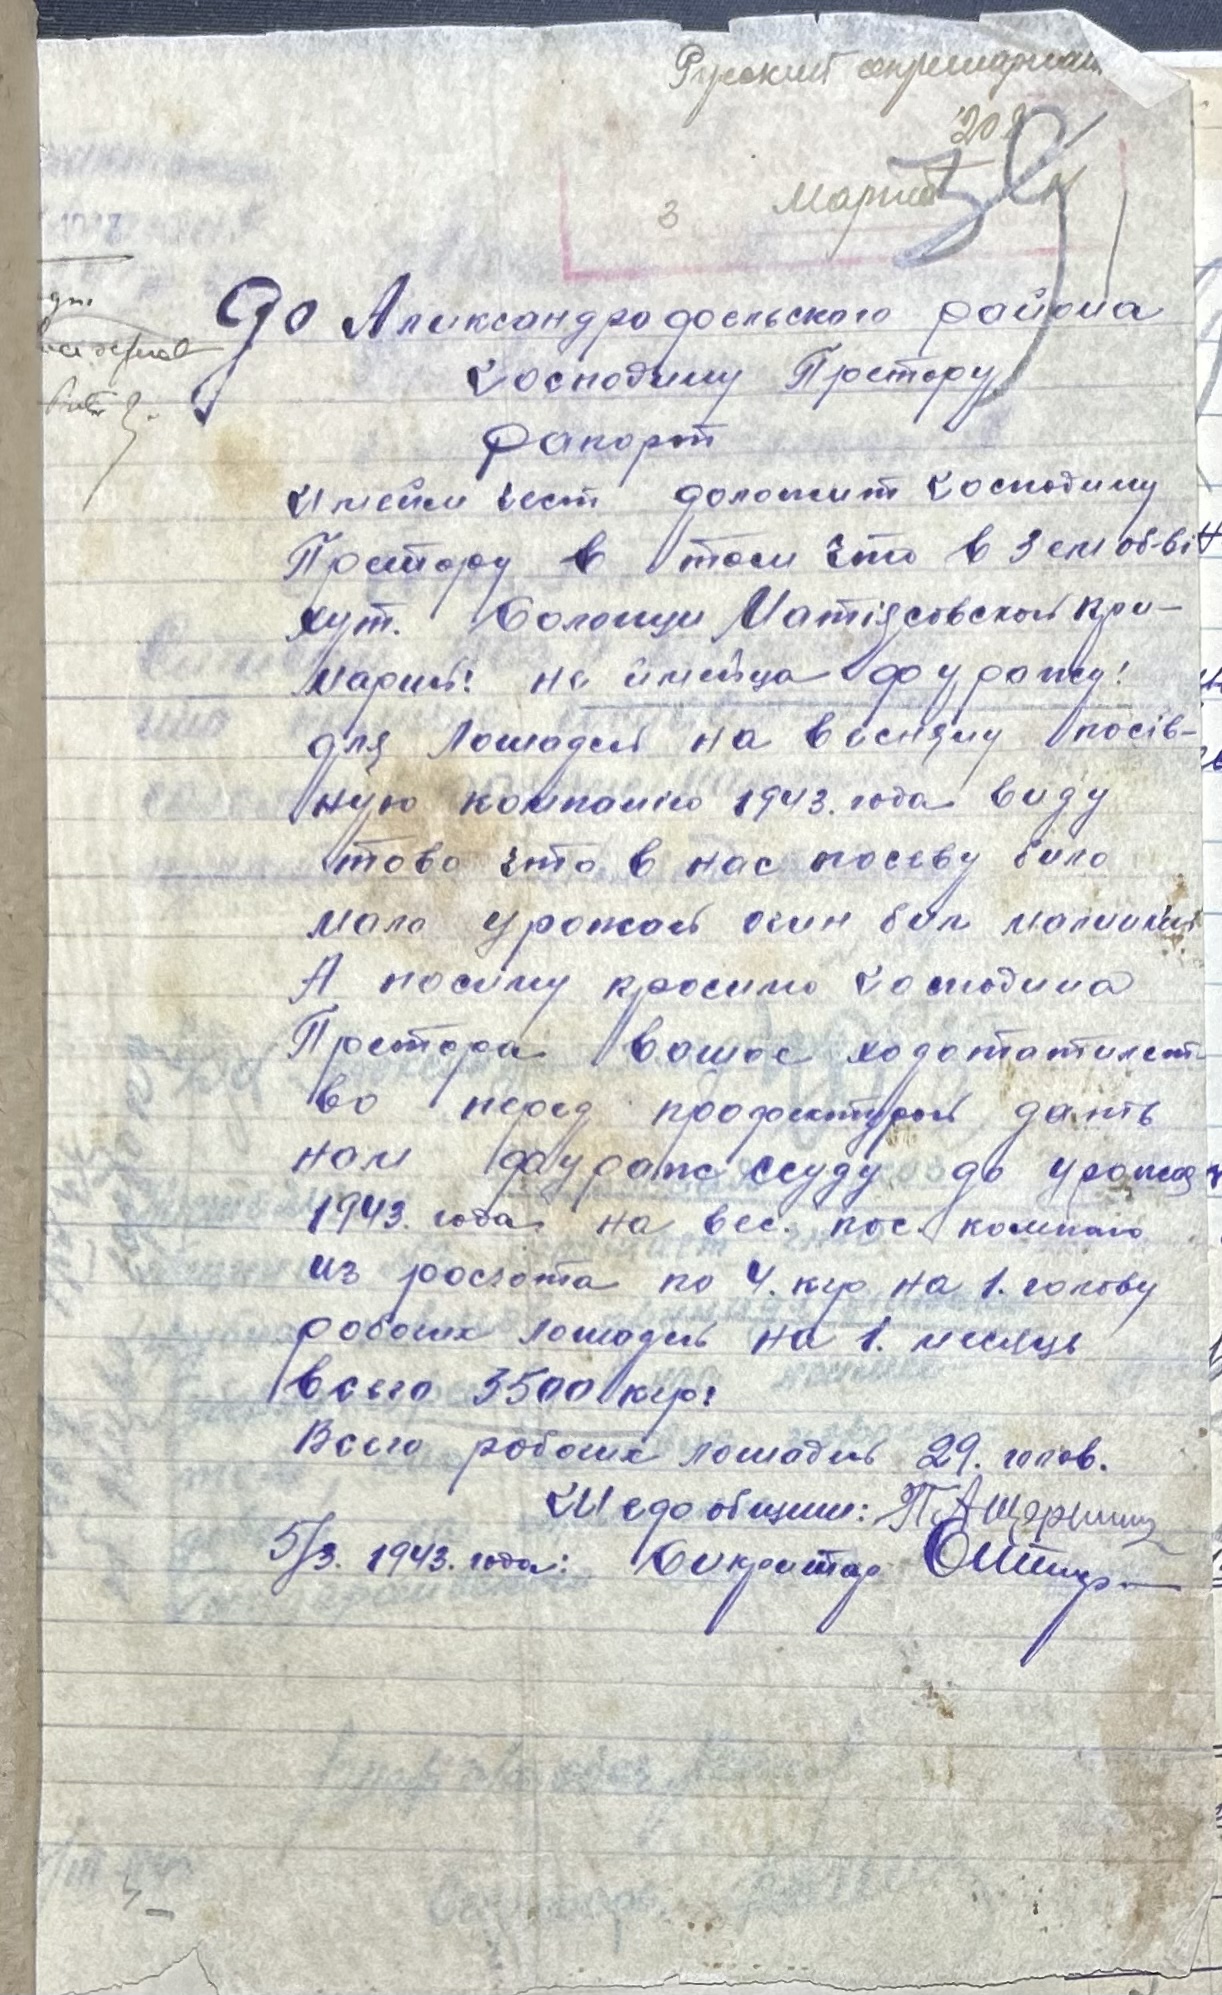 Русский секретариат
202
3 Марта
До Александрофельського района
Господину Претору
Рапорт
Имеим чест доложит Господину
Претору в том что вЗемоб-ві
хут. Солонци Матіясовской при-
марий: не имеица фуражу!
для лошадей на весняну посів-
ную компанію 1943. года виду
тово что в нас посеву било
мало урожай огин бил малинкий
А посему просимо Господина
Претора вашое ходотатилст
во перед префектурой дать
нам фураж ссуду до урожая
1943. года на вес. пос. компаю
из росчота по 4. кгр на 1. голову
робочих лошадей на 1. месяць
всего 3500 кгр:
Всего робочих лошадей 29. голов.
Шедо общини: П. А
5/3. 1943. года: Секритар